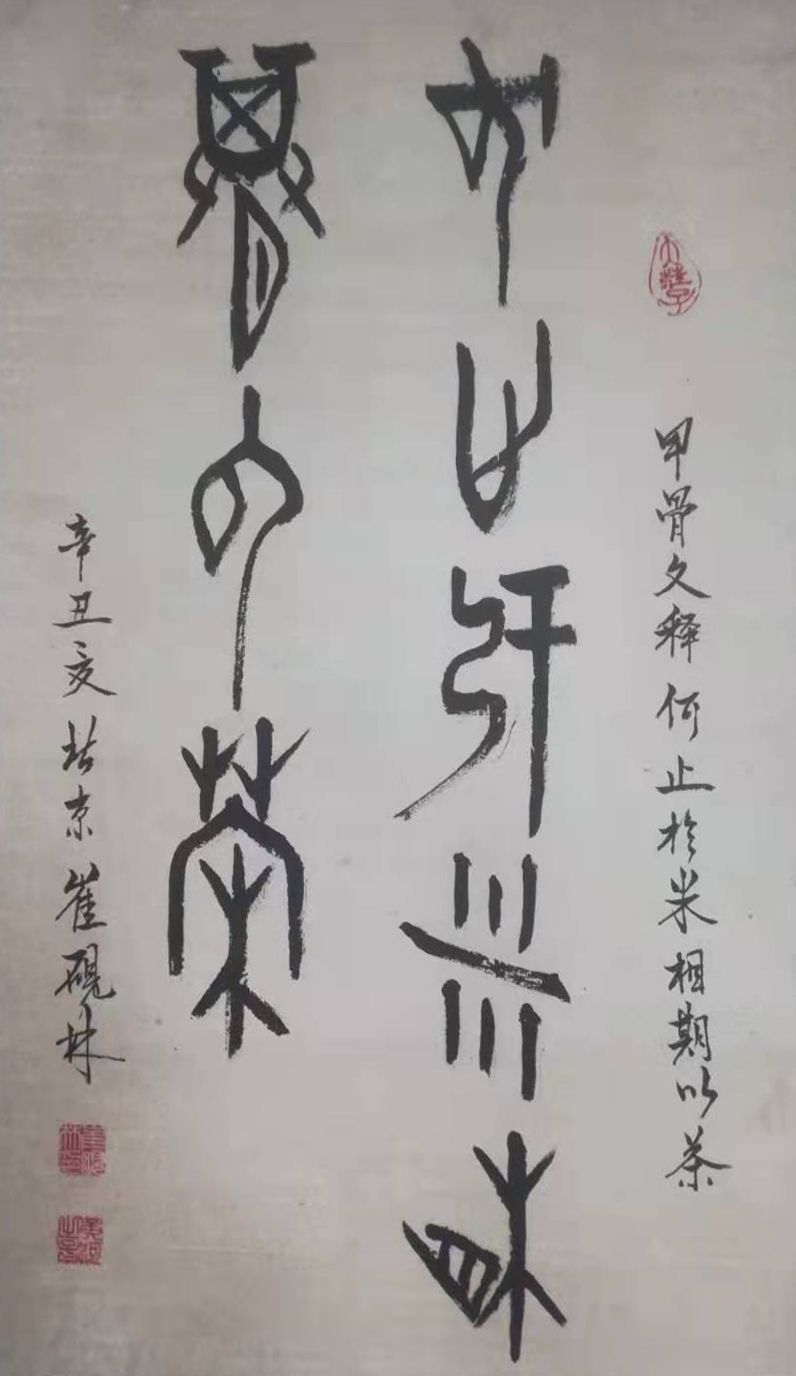 何止於米相
期以茶
甲骨文释何止於米相期以茶
辛丑夏北京崔砚林